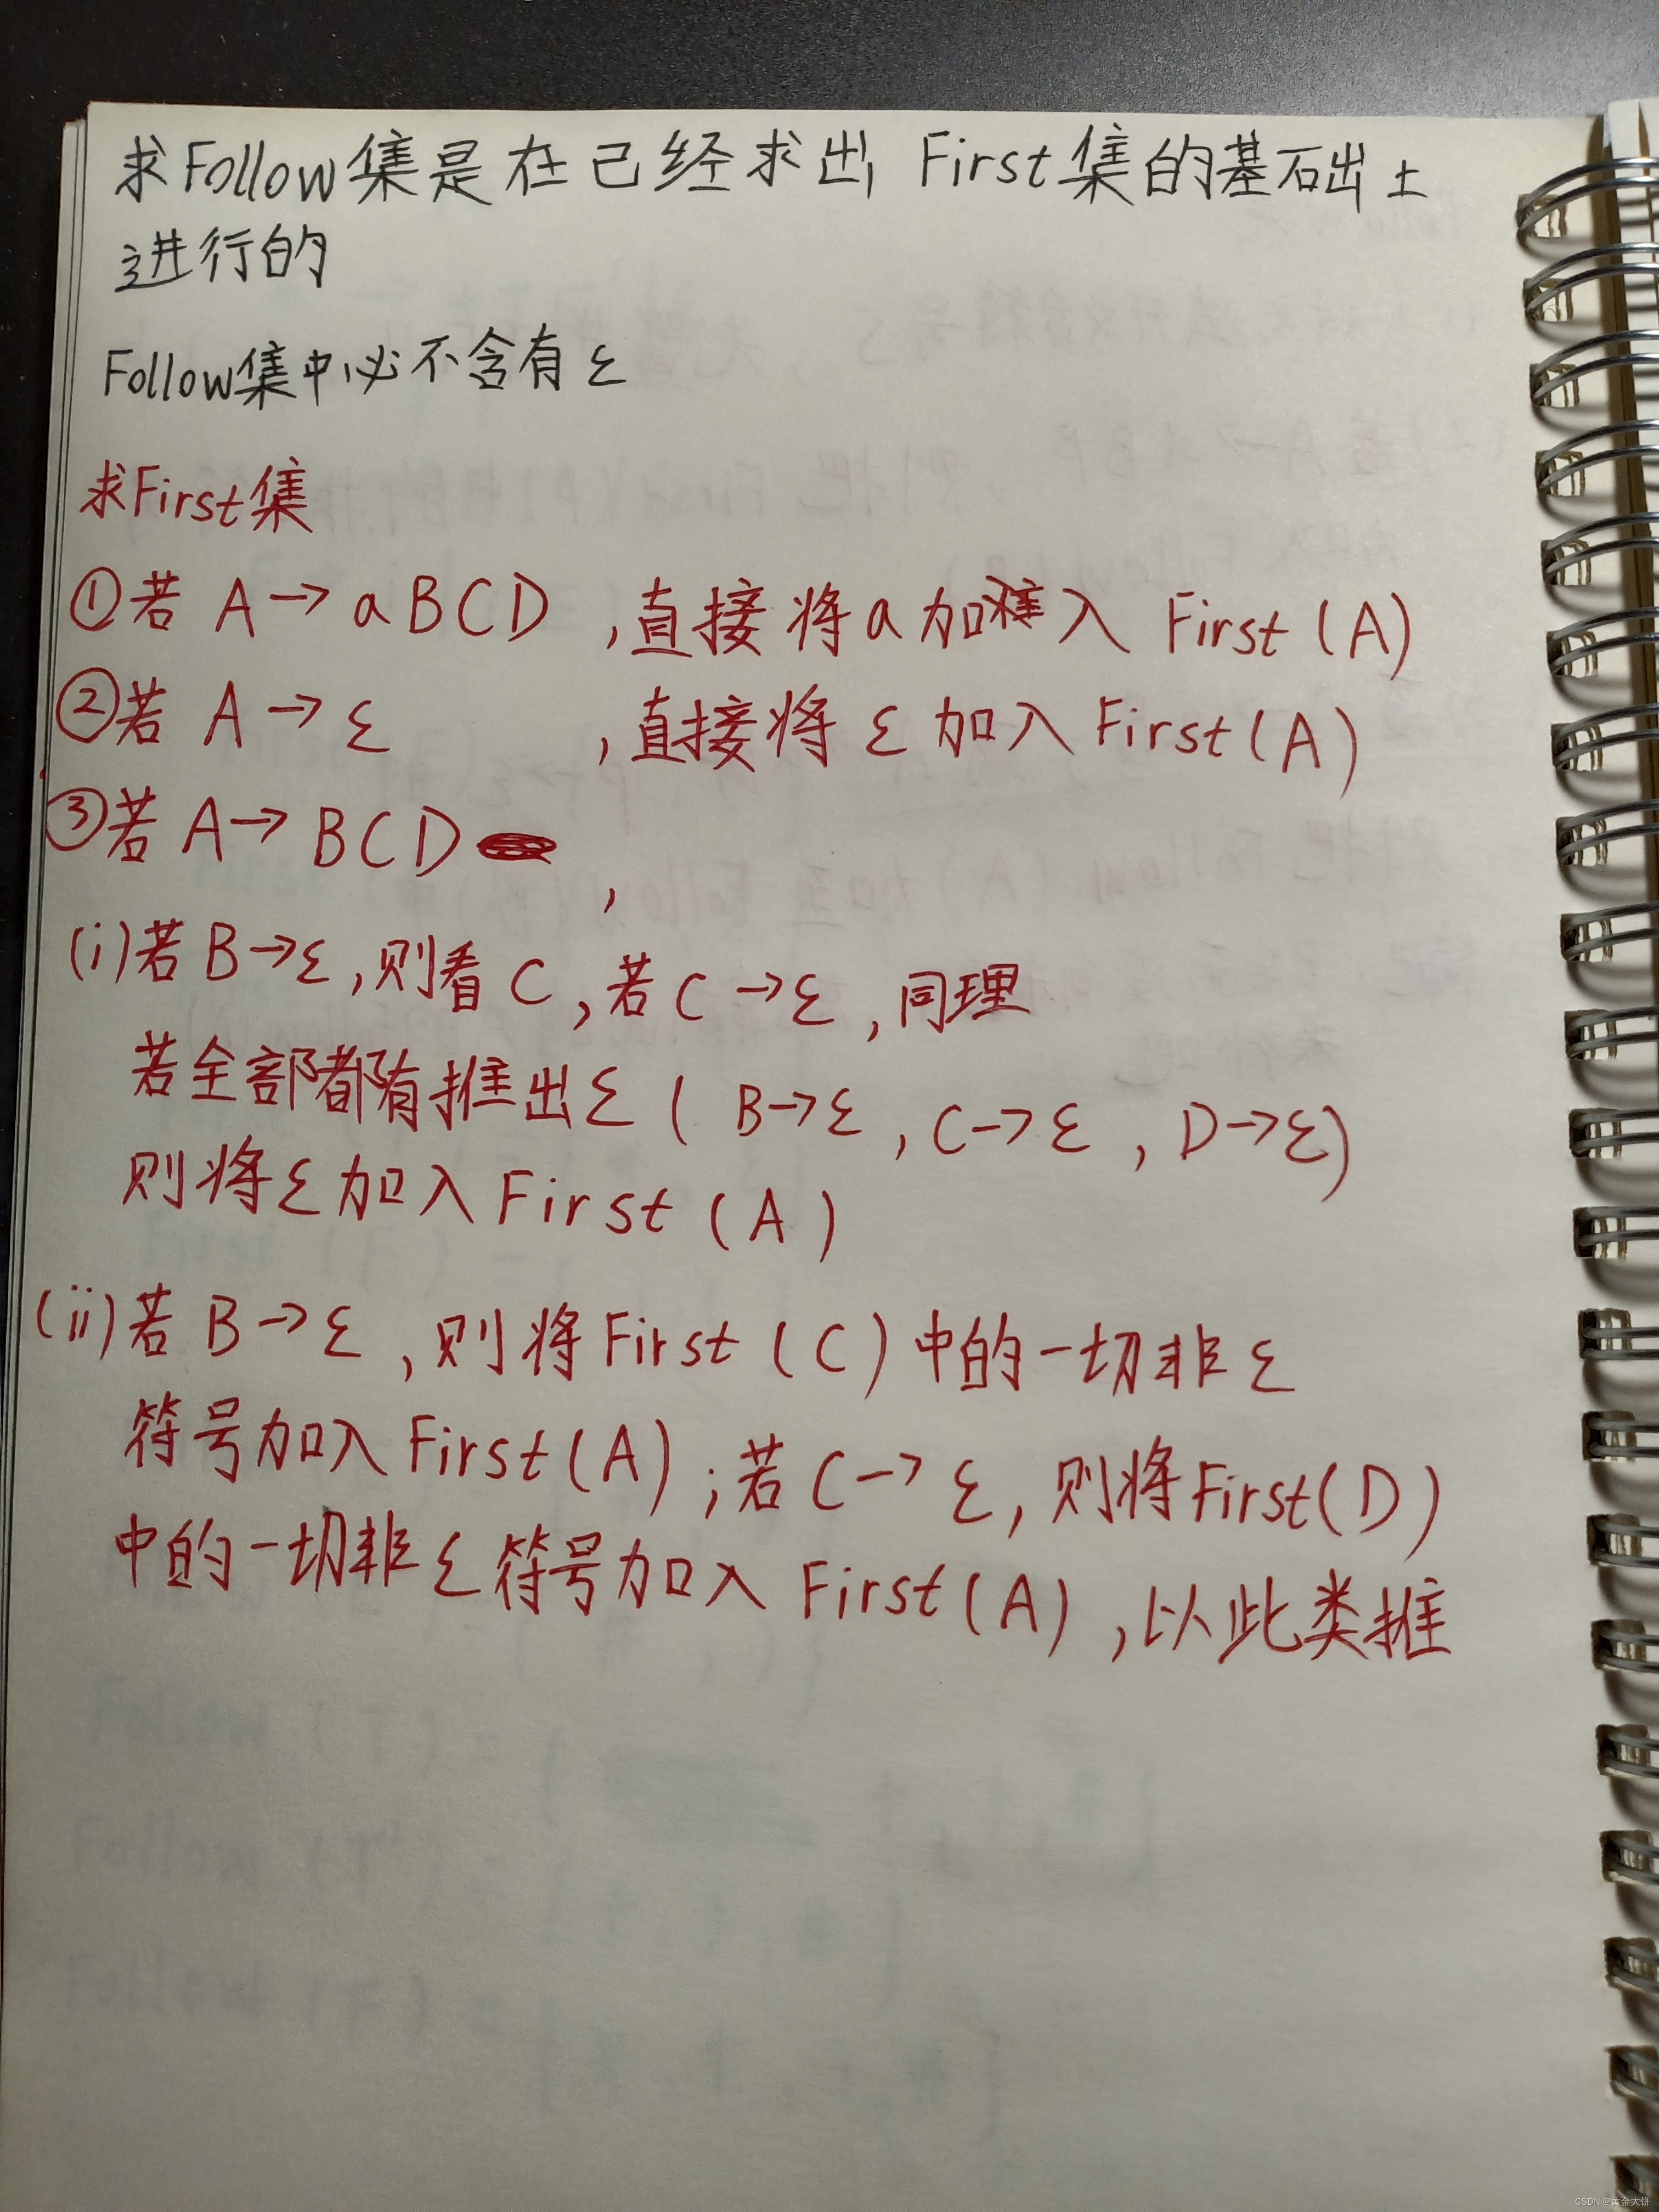 求Follow集是在已经求出First集的基础上
进行的
Follow集中必不含有ε
求First集
①若 A→aBCD ,直接将a加入 First(A)
②若 A→ε ,直接将ε加入First(A)
③若 A→BCD ,
(i)若B→ε,则看C,若C→ε,同理
若全部都有推出ε( B→ε , C→ε , D→ε)
则将ε加入First(A)
(ii)若B→ε,则将First(C)中的一切非ε
符号加入First(A);若C→ε,则将First(D)
中的一切非ε符号加入First(A),以此类推
CSDN @黄金大饼